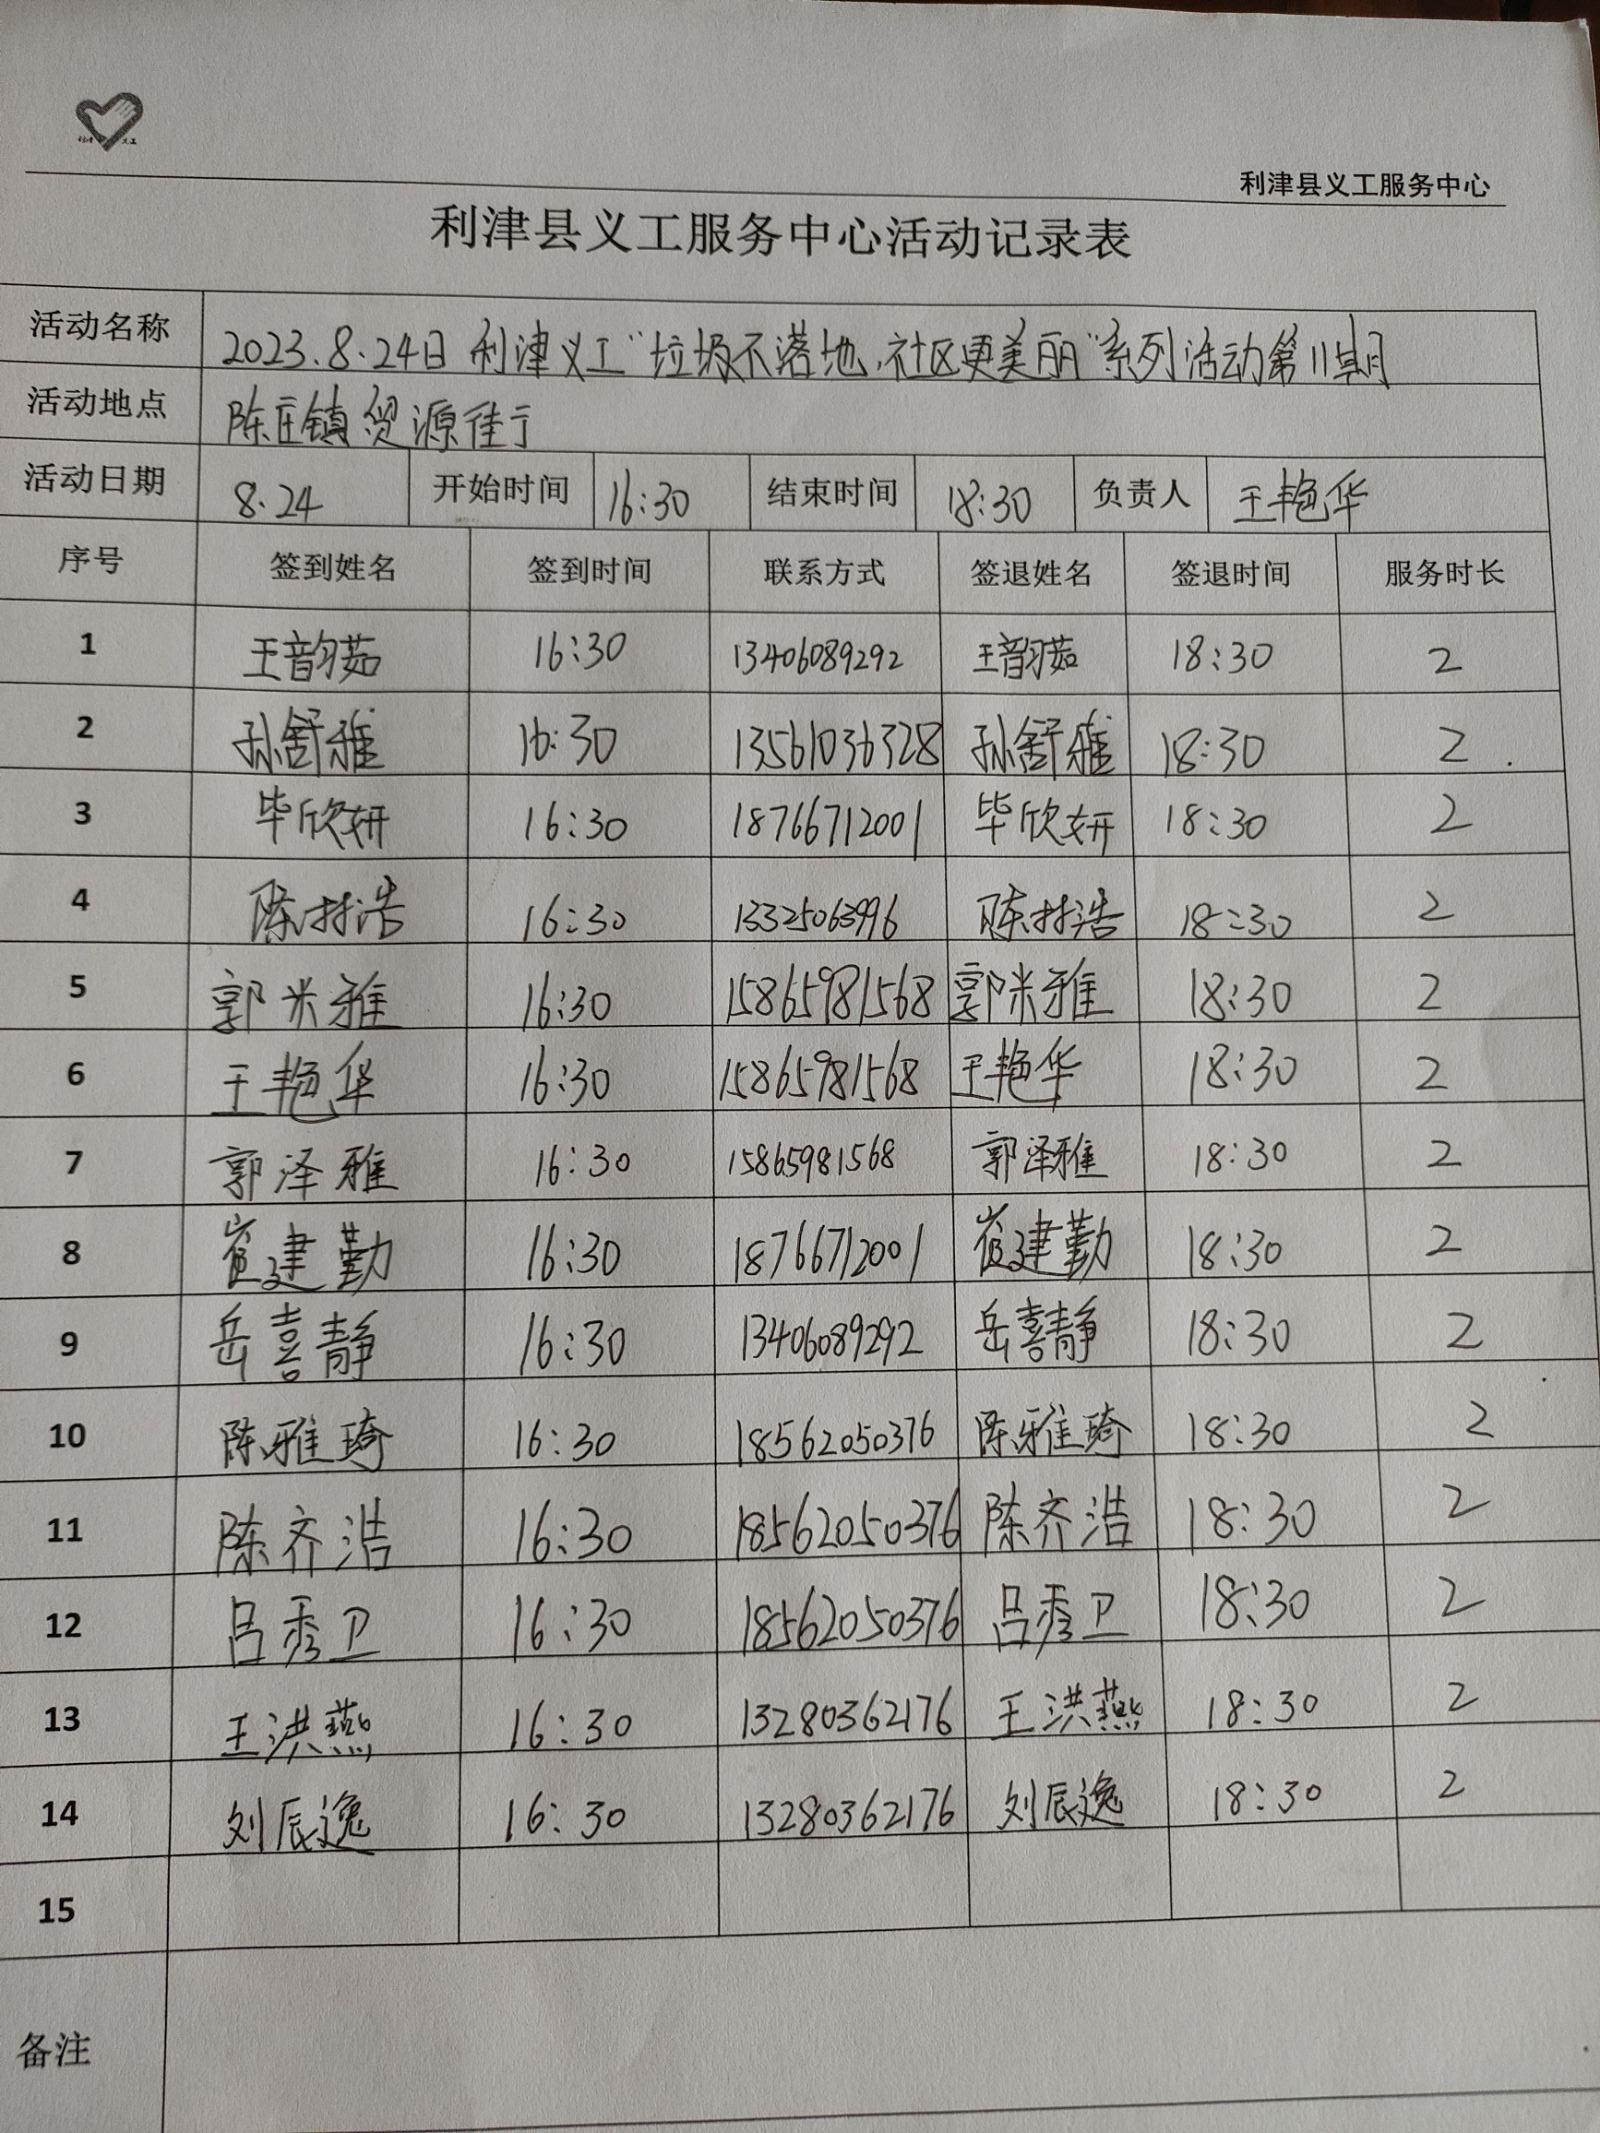 利津 义工
利津县义工服务中心
利津县义工服务中心活动记录表
活动名称 2023.8.24日利津义工"垃圾不落地,社区更美丽"系列活动第11期
活动地点 陈庄镇贸源佳宁
活动日期 8.24 开始时间 16:30 结束时间 18:30 负责人 王艳华
序号 签到姓名 签到时间 联系方式 签退姓名 签退时间 服务时长
1 王韵茹 16:30 13406089292 王韵茹 18:30 2
2 孙舒雅 16:30 13561036328 孙舒雅 18:30 2
3 毕欣妍 16:30 18766712001 毕欣妍 18:30 2
4 陈树浩 16:30 13325063996 陈树浩 18:30 2
5 郭米雅 16:30 15865981568 郭米雅 18:30 2
6 王艳华 16:30 15865981568 王艳华 18:30 2
7 郭泽雅 16:30 15865981568 郭泽雅 18:30 2
8 崔建勤 16:30 18766712001 崔建勤 18:30 2
9 岳喜静 16:30 13406089292 岳喜静 18:30 2
10 陈雅琦 16:30 18562050376 陈雅琦 18:30 2
11 陈齐浩 16:30 18562050376 陈齐浩 18:30 2
12 吕秀卫 16:30 18562050376 吕秀卫 18:30 2
13 王洪燕 16:30 13280362176 王洪燕 18:30 2
14 刘辰逸 16:30 13280362176 刘辰逸 18:30 2
15
备注